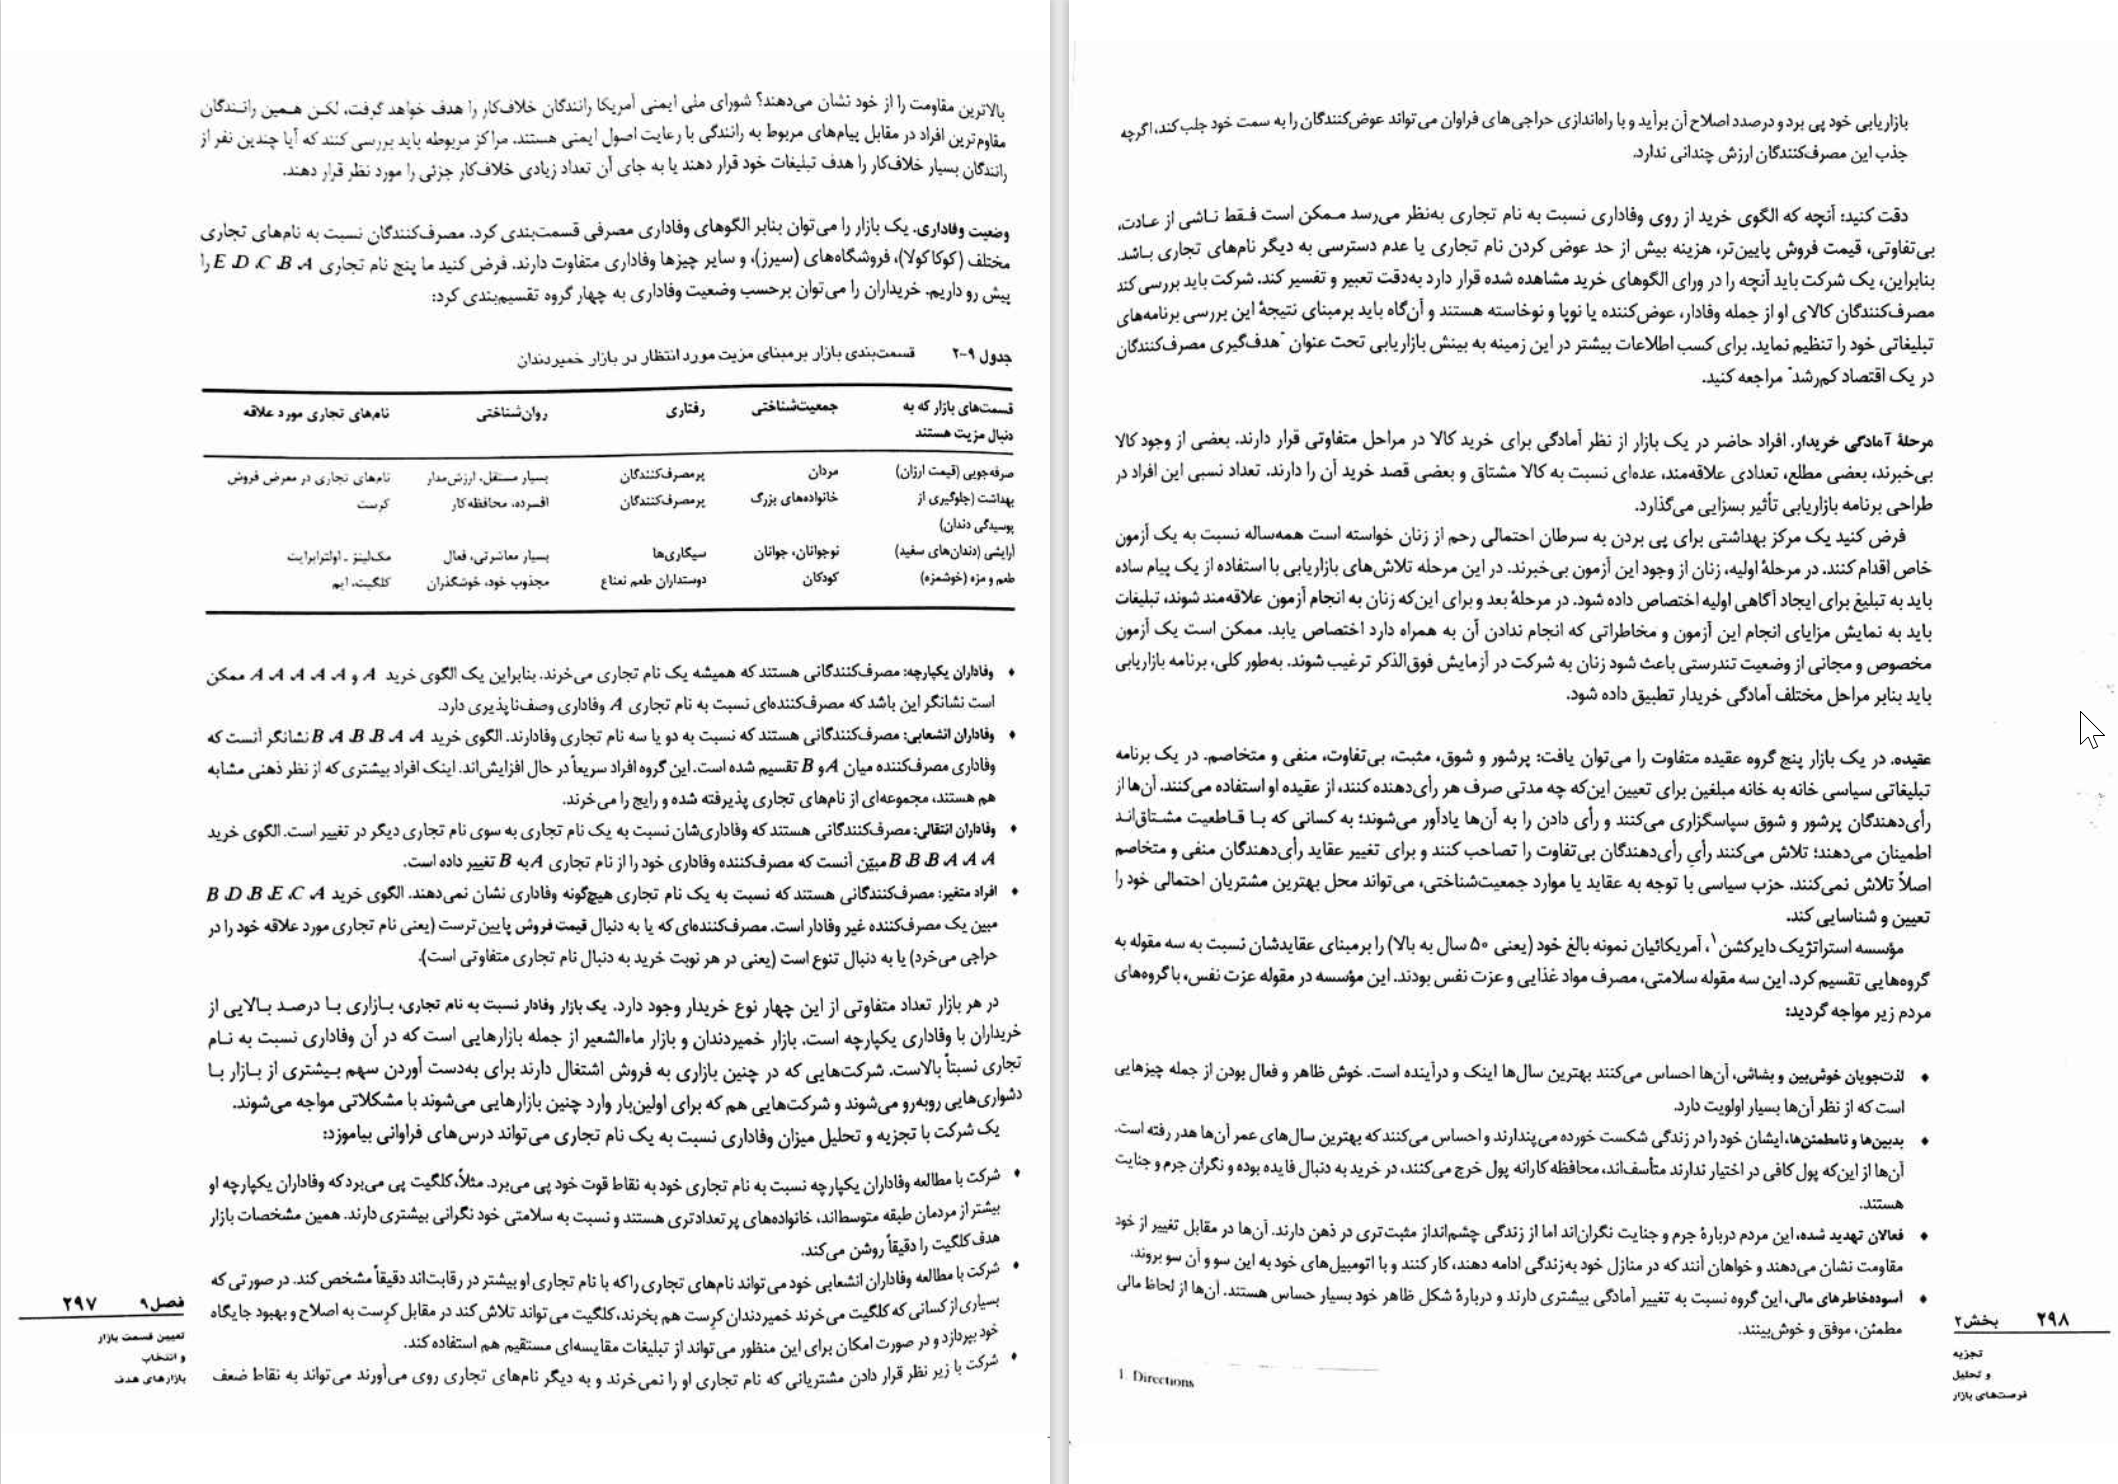 بالاترین مقاومت را از خود نشان می‌دهند؟ شورای ملی ایمنی آمریکا رانندگان خلاف‌کار را هدف خواهد گرفت، لکن همین رانندگان
مقاوم‌ترین افراد در مقابل پیام‌های مربوط به رانندگی با رعایت اصول ایمنی هستند. مراکز مربوطه باید بررسی کنند که آیا چندین نفر از
رانندگان بسیار خلاف‌کار را هدف تبلیغات خود قرار دهند یا به جای آن تعداد زیادی خلاف‌کار جزئی را مورد نظر قرار دهند.
وضعیت وفاداری. یک بازار را می‌توان بنابر الگوهای وفاداری مصرفی قسمت‌بندی کرد. مصرف‌کنندگان نسبت به نام‌های تجاری
مختلف (کوکاکولا)، فروشگاه‌های (سیرز)، و سایر چیزها وفاداری متفاوت دارند. فرض کنید ما پنج نام تجاری A، B، C، D، E را
پیش رو داریم. خریداران را می‌توان برحسب وضعیت وفاداری به چهار گروه تقسیم‌بندی کرد:
جدول ۹-۲ قسمت‌بندی بازار برمبنای مزیت مورد انتظار در بازار خمیردندان
قسمت‌های بازار که به جمعیت‌شناختی رفتاری روان‌شناختی نام‌های تجاری مورد علاقه
دنبال مزیت هستند
صرفه‌جویی (قیمت ارزان) مردان پرمصرف‌کنندگان بسیار مستقل، ارزش‌مدار نام‌های تجاری در معرض فروش
بهداشت (جلوگیری از خانواده‌های بزرگ پرمصرف‌کنندگان افسرده، محافظه‌کار کرست
پوسیدگی دندان)
آرایشی (دندان‌های سفید) نوجوانان، جوانان سیگاری‌ها بسیار معاشرتی، فعال مک‌لینز ـ اولترابرایت
طعم و مزه (خوشمزه) کودکان دوستداران طعم نعناع مجذوب خود، خوشگذران کلگیت، ایم
♦ وفاداران یکپارچه: مصرف‌کنندگانی هستند که همیشه یک نام تجاری می‌خرند. بنابراین یک الگوی خرید A و A، A، A، A، A ممکن
است نشانگر این باشد که مصرف‌کننده‌ای نسبت به نام تجاری A وفاداری وصف‌ناپذیری دارد.
♦ وفاداران انشعابی: مصرف‌کنندگانی هستند که نسبت به دو یا سه نام تجاری وفادارند. الگوی خرید A، A، B، B، A، B نشانگر آنست که
وفاداری مصرف‌کننده میان A و B تقسیم شده است. این گروه افراد سریعاً در حال افزایش‌اند. اینک افراد بیشتری که از نظر ذهنی مشابه
هم هستند، مجموعه‌ای از نام‌های تجاری پذیرفته شده و رایج را می‌خرند.
♦ وفاداران انتقالی: مصرف‌کنندگانی هستند که وفاداری‌شان نسبت به یک نام تجاری به سوی نام تجاری دیگر در تغییر است. الگوی خرید
A، A، A، B، B، B مبیّن آنست که مصرف‌کننده وفاداری خود را از نام تجاری A به B تغییر داده است.
♦ افراد متغیر: مصرف‌کنندگانی هستند که نسبت به یک نام تجاری هیچ‌گونه وفاداری نشان نمی‌دهند. الگوی خرید A، C، E، B، D، B
مبین یک مصرف‌کننده غیر وفادار است. مصرف‌کننده‌ای که یا به دنبال قیمت فروش پایین‌ترست (یعنی نام تجاری مورد علاقه خود را در
حراجی می‌خرد) یا به دنبال تنوع است (یعنی در هر نوبت خرید به دنبال نام تجاری متفاوتی است).
در هر بازار تعداد متفاوتی از این چهار نوع خریدار وجود دارد. یک بازار وفادار نسبت به نام تجاری، بازاری با درصد بالایی از
خریداران با وفاداری یکپارچه است. بازار خمیردندان و بازار ماءالشعیر از جمله بازارهایی است که در آن وفاداری نسبت به نام
تجاری نسبتاً بالاست. شرکت‌هایی که در چنین بازاری به فروش اشتغال دارند برای به‌دست آوردن سهم بیشتری از بازار با
دشواری‌هایی روبه‌رو می‌شوند و شرکت‌هایی هم که برای اولین‌بار وارد چنین بازارهایی می‌شوند با مشکلاتی مواجه می‌شوند.
یک شرکت با تجزیه و تحلیل میزان وفاداری نسبت به یک نام تجاری می‌تواند درس‌های فراوانی بیاموزد:
♦ شرکت با مطالعه وفاداران یکپارچه نسبت به نام تجاری خود به نقاط قوت خود پی می‌برد. مثلاً، کلگیت پی می‌برد که وفاداران یکپارچه او
بیشتر از مردمان طبقه متوسط‌اند، خانواده‌های پر تعدادتری هستند و نسبت به سلامتی خود نگرانی بیشتری دارند. همین مشخصات بازار
هدف کلگیت را دقیقاً روشن می‌کند.
♦ شرکت با مطالعه وفاداران انشعابی خود می‌تواند نام‌های تجاری را که با نام تجاری او بیشتر در رقابت‌اند دقیقاً مشخص کند. در صورتی که
بسیاری از کسانی که کلگیت می‌خرند خمیردندان کرست هم بخرند، کلگیت می‌تواند تلاش کند در مقابل کرست به اصلاح و بهبود جایگاه
خود بپردازد و در صورت امکان برای این منظور می‌تواند از تبلیغات مقایسه‌ای مستقیم هم استفاده کند.
♦ شرکت با زیر نظر قرار دادن مشتریانی که نام تجاری او را نمی‌خرند و به دیگر نام‌های تجاری روی می‌آورند می‌تواند به نقاط ضعف
فصل ۹ ۲۹۷
تعیین قسمت بازار
و انتخاب
بازارهای هدف
بازاریابی خود پی برد و درصدد اصلاح آن برآید و با راه‌اندازی حراجی‌های فراوان می‌تواند عوض‌کنندگان را به سمت خود جلب کند، اگرچه
جذب این مصرف‌کنندگان ارزش چندانی ندارد.
دقت کنید: آنچه که الگوی خرید از روی وفاداری نسبت به نام تجاری به‌نظر می‌رسد ممکن است فقط ناشی از عادت،
بی‌تفاوتی، قیمت فروش پایین‌تر، هزینه بیش از حد عوض کردن نام تجاری یا عدم دسترسی به دیگر نام‌های تجاری باشد.
بنابراین، یک شرکت باید آنچه را در ورای الگوهای خرید مشاهده شده قرار دارد به‌دقت تعبیر و تفسیر کند. شرکت باید بررسی کند
مصرف‌کنندگان کالای او از جمله وفادار، عوض‌کننده یا نوپا و نوخاسته هستند و آن‌گاه باید برمبنای نتیجهٔ این بررسی برنامه‌های
تبلیغاتی خود را تنظیم نماید. برای کسب اطلاعات بیشتر در این زمینه به بینش بازاریابی تحت عنوان "هدف‌گیری مصرف‌کنندگان
در یک اقتصاد کم‌رشد" مراجعه کنید.
مرحلهٔ آمادگی خریدار. افراد حاضر در یک بازار از نظر آمادگی برای خرید کالا در مراحل متفاوتی قرار دارند. بعضی از وجود کالا
بی‌خبرند، بعضی مطلع، تعدادی علاقه‌مند، عده‌ای نسبت به کالا مشتاق و بعضی قصد خرید آن را دارند. تعداد نسبی این افراد در
طراحی برنامه بازاریابی تأثیر بسزایی می‌گذارد.
فرض کنید یک مرکز بهداشتی برای پی بردن به سرطان احتمالی رحم از زنان خواسته است همه‌ساله نسبت به یک آزمون
خاص اقدام کنند. در مرحلهٔ اولیه، زنان از وجود این آزمون بی‌خبرند. در این مرحله تلاش‌های بازاریابی با استفاده از یک پیام ساده
باید به تبلیغ برای ایجاد آگاهی اولیه اختصاص داده شود. در مرحلهٔ بعد و برای این‌که زنان به انجام آزمون علاقه‌مند شوند، تبلیغات
باید به نمایش مزایای انجام این آزمون و مخاطراتی که انجام ندادن آن به همراه دارد اختصاص یابد. ممکن است یک آزمون
مخصوص و مجانی از وضعیت تندرستی باعث شود زنان به شرکت در آزمایش فوق‌الذکر ترغیب شوند. به‌طور کلی، برنامه بازاریابی
باید بنابر مراحل مختلف آمادگی خریدار تطبیق داده شود.
عقیده. در یک بازار پنج گروه عقیده متفاوت را می‌توان یافت: پرشور و شوق، مثبت، بی‌تفاوت، منفی و متخاصم. در یک برنامه
تبلیغاتی سیاسی خانه به خانه مبلغین برای تعیین این‌که چه مدتی صرف هر رأی‌دهنده کنند، از عقیده او استفاده می‌کنند. آن‌ها از
رأی‌دهندگان پرشور و شوق سپاسگزاری می‌کنند و رأی دادن را به آن‌ها یادآور می‌شوند؛ به کسانی که با قاطعیت مشتاق‌اند
اطمینان می‌دهند؛ تلاش می‌کنند رأی رأی‌دهندگان بی‌تفاوت را تصاحب کنند و برای تغییر عقاید رأی‌دهندگان منفی و متخاصم
اصلاً تلاش نمی‌کنند. حزب سیاسی با توجه به عقاید یا موارد جمعیت‌شناختی، می‌تواند محل بهترین مشتریان احتمالی خود را
تعیین و شناسایی کند.
مؤسسه استراتژیک دایرکشن۱، آمریکائیان نمونه بالغ خود (یعنی ۵۰ سال به بالا) را برمبنای عقایدشان نسبت به سه مقوله به
گروه‌هایی تقسیم کرد. این سه مقوله سلامتی، مصرف مواد غذایی و عزت نفس بودند. این مؤسسه در مقوله عزت نفس، با گروه‌های
مردم زیر مواجه گردید:
♦ لذت‌جویان خوش‌بین و بشاش، آن‌ها احساس می‌کنند بهترین سال‌ها اینک و درآینده است. خوش ظاهر و فعال بودن از جمله چیزهایی
است که از نظر آن‌ها بسیار اولویت دارد.
♦ بدبین‌ها و نامطمئن‌ها، ایشان خود را در زندگی شکست خورده می‌پندارند و احساس می‌کنند که بهترین سال‌های عمر آن‌ها هدر رفته است.
آن‌ها از این‌که پول کافی در اختیار ندارند متأسف‌اند، محافظه کارانه پول خرج می‌کنند، در خرید به دنبال فایده بوده و نگران جرم و جنایت
هستند.
♦ فعالان تهدید شده، این مردم دربارهٔ جرم و جنایت نگران‌اند اما از زندگی چشم‌انداز مثبت‌تری در ذهن دارند. آن‌ها در مقابل تغییر از خود
مقاومت نشان می‌دهند و خواهان آنند که در منازل خود به‌زندگی ادامه دهند، کار کنند و با اتومبیل‌های خود به این سو و آن سو بروند.
♦ آسوده‌خاطرهای مالی، این گروه نسبت به تغییر آمادگی بیشتری دارند و دربارهٔ شکل ظاهر خود بسیار حساس هستند. آن‌ها از لحاظ مالی
مطمئن، موفق و خوش‌بینند.
1. Directions
۲۹۸ بخش ۲
تجزیه
و تحلیل
فرصت‌های بازار